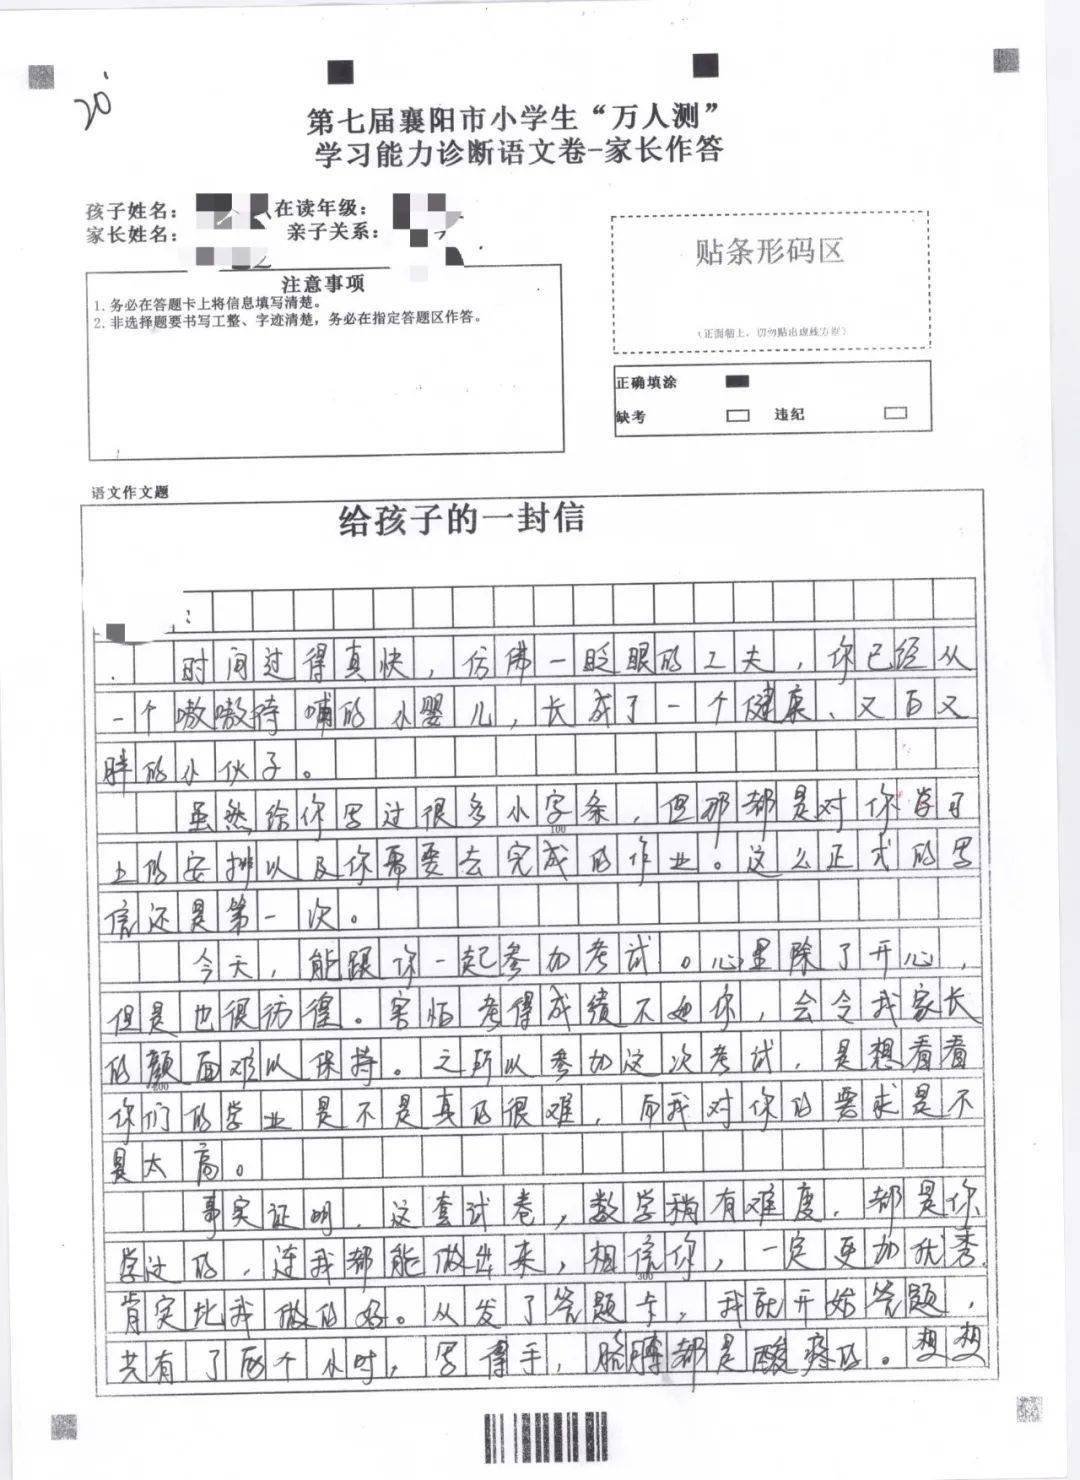 20'
第七届襄阳市小学生“万人测”
学习能力诊断语文卷-家长作答
孩子姓名： 在读年级：
家长姓名： 亲子关系：
贴条形码区
（正面朝上，切勿贴出虚线方框）
注意事项
1. 务必在答题卡上将信息填写清楚。
2. 非选择题要书写工整、字迹清楚，务必在指定答题区作答。
正确填涂
缺考 违纪
语文作文题
给孩子的一封信
：
时间过得真快，仿佛一眨眼的工夫，你已经从
一个嗷嗷待哺的小婴儿，长成了一个健康、又白又
胖的小伙子。
虽然给你写过很多小字条，但那都是对你学习
100
上的安排以及你需要去完成的作业。这么正式的写
信还是第一次。
今天，能跟你一起参加考试。心里除了开心，
但是也很彷徨。害怕考得成绩不如你，会令我家长
的颜面难以保持。之所以参加这次考试，是想看看
200
你们的学业是不是真的很难，而我对你的要求是不
是太高。
事实证明，这套试卷，数学稍有难度，都是你
学过的，连我都能做出来，相信你，一定更加优秀，
300
肯定比我做的好。从发了答题卡，我就开始答题，
共有了两个小时，写得手，胳膊都是酸疼的。想想